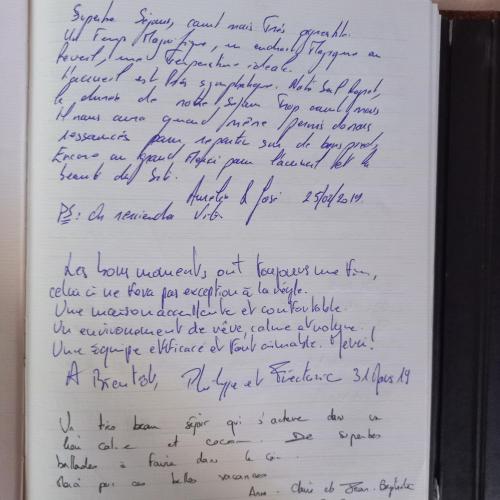 Superbe Séjour, court mais très agréable.
Un temps magnifique, un endroit magique au
réveil, une température idéale.
L'accueil est très sympathique. Notre seul regret,
la durée de notre séjour trop court mais
Il nous aura quand même permis de nous
ressourcés pour repartir sur de bons pieds.
Encore un grand Merci pour l'accueil et la
beauté du Site.
Aurélie & José 25/02/2019.
PS : On reviendra Vite.
Les bons moments ont toujours une fin,
celui ci ne fera pas exception à la règle.
Une maison accueillante et confortable.
Un environnement de rêve, calme et
Une équipe efficace et fort aimable. Merci !
A Bientôt, Philippe et Frédérique 31 Mars 19
Un très beau séjour qui s'achève dans un
lieu calme et cocoon. De superbes
ballades à faire dans le coin.
Merci pour ces belles vacances
Anne-Claire et Jean-Baptiste